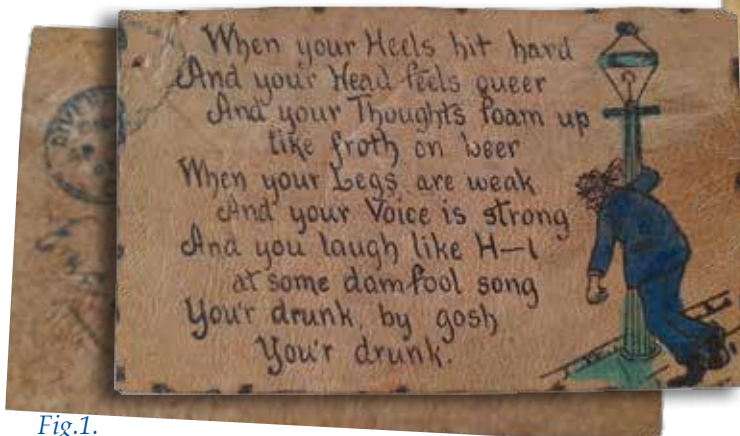 When your Heels hit hard
And your Head feels queer
And your Thoughts foam up
like froth on beer
When your Legs are weak
And your Voice is strong
And you laugh like H—l
at some damfool song
You'r drunk, by gosh
You'r drunk.
Fig.1.